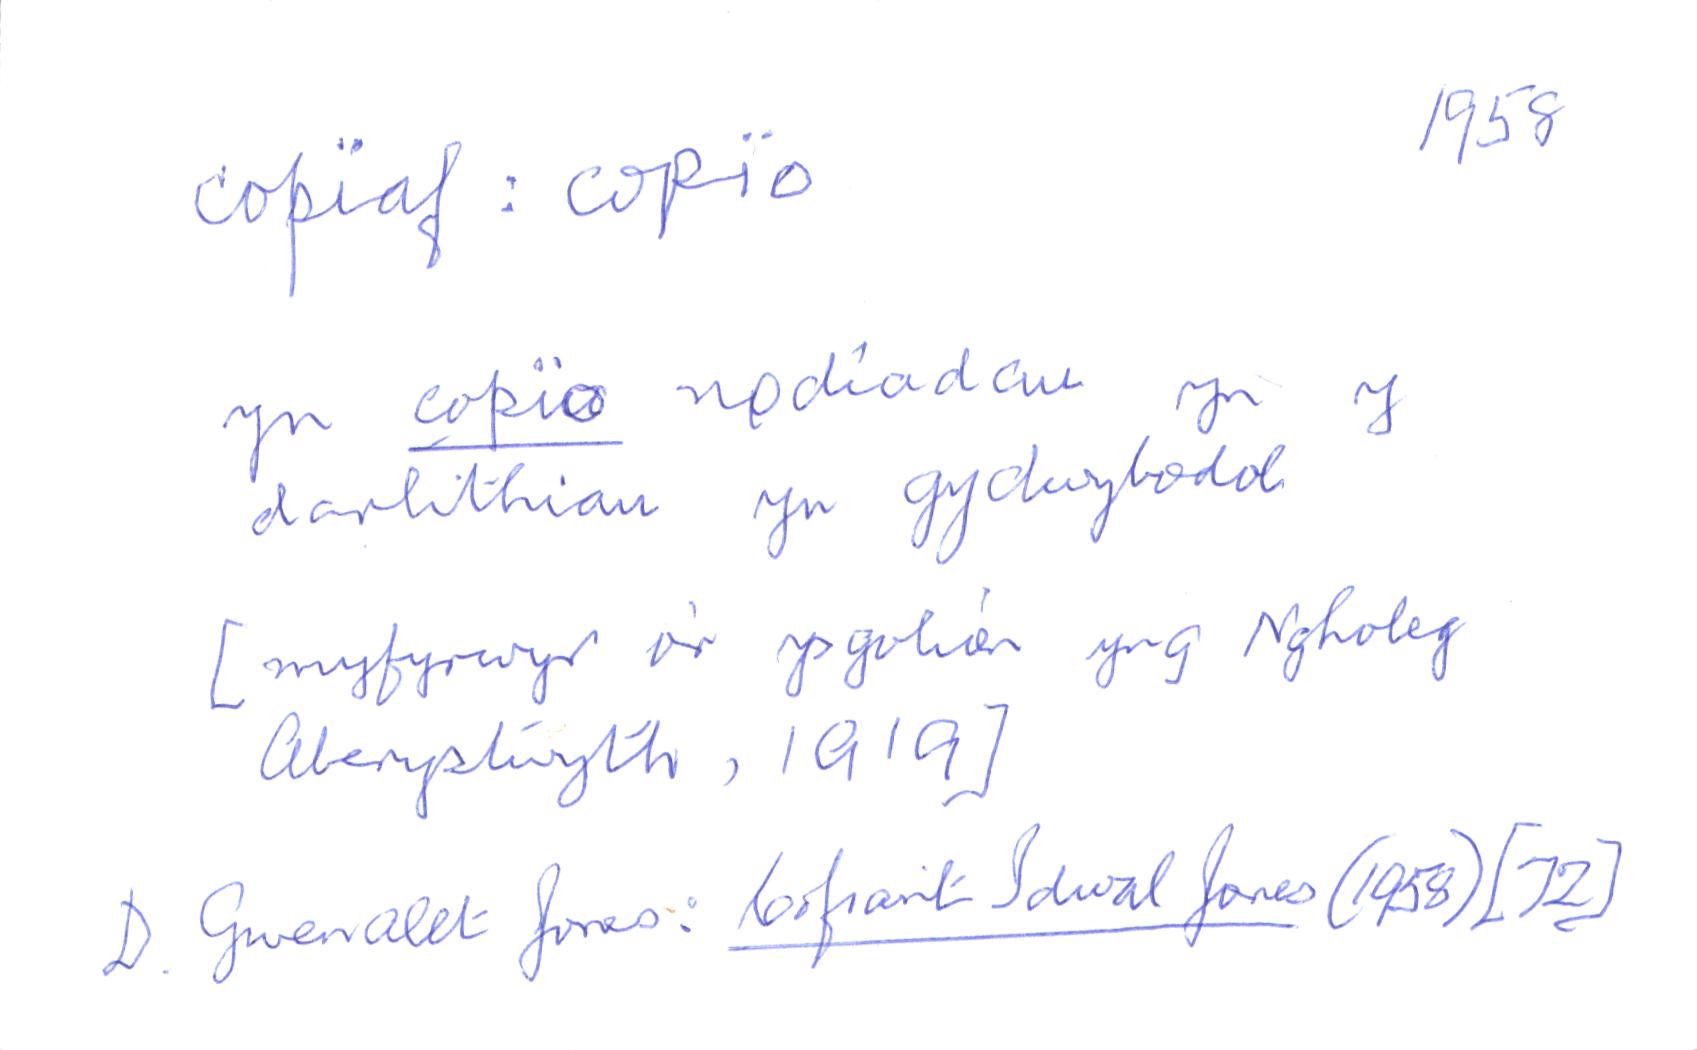 1958
copïaf : copïo
yn copïo nodiadau yn y
darlithiau yn gydwybodol
[myfyrwyr o'r ysgolion yng Ngholeg
Aberystwyth, 1919]
D. Gwenallt Jones: Cofiant Idwal Jones (1958) [72]